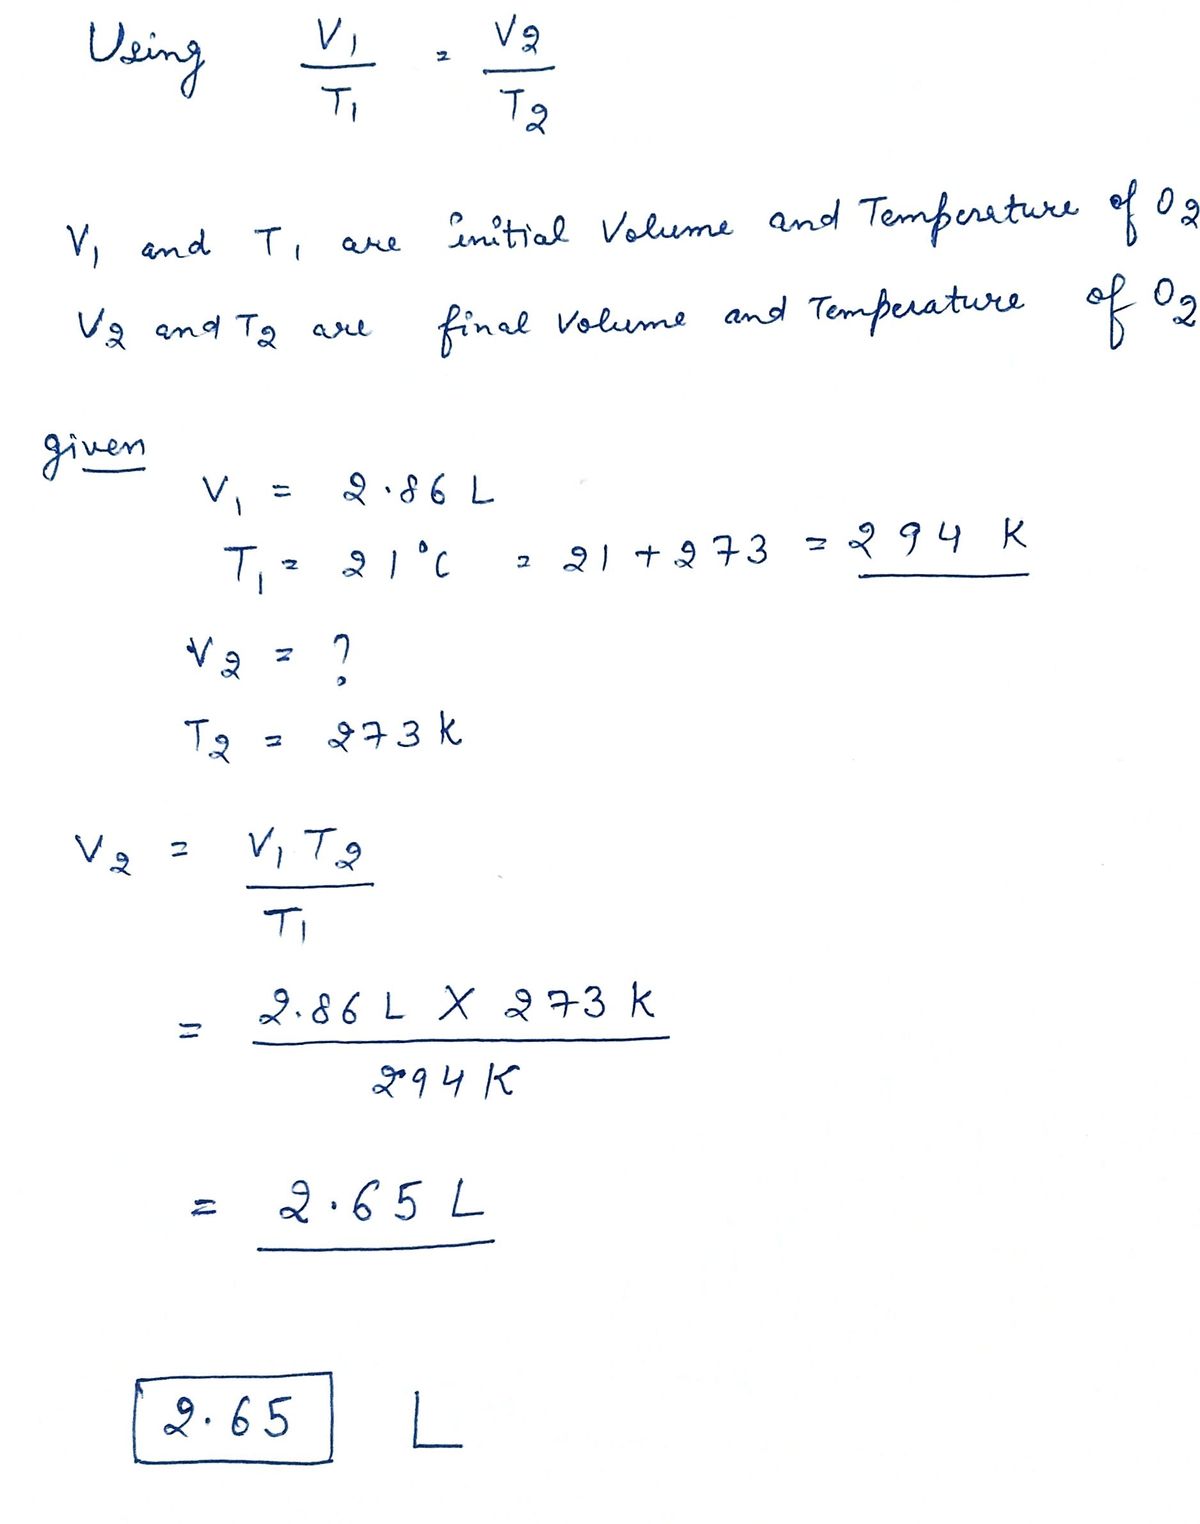 Using V1/T1 = V2/T2
V1 and T1 are initial Volume and Temperature of O2
V2 and T2 are final Volume and Temperature of O2
given
V1 = 2.86 L
T1 = 21°C = 21 + 273 = 294 K
V2 = ?
T2 = 273 K
V2 = V1 T2 / T1
= 2.86 L X 273 K / 294 K
= 2.65 L
2.65 L